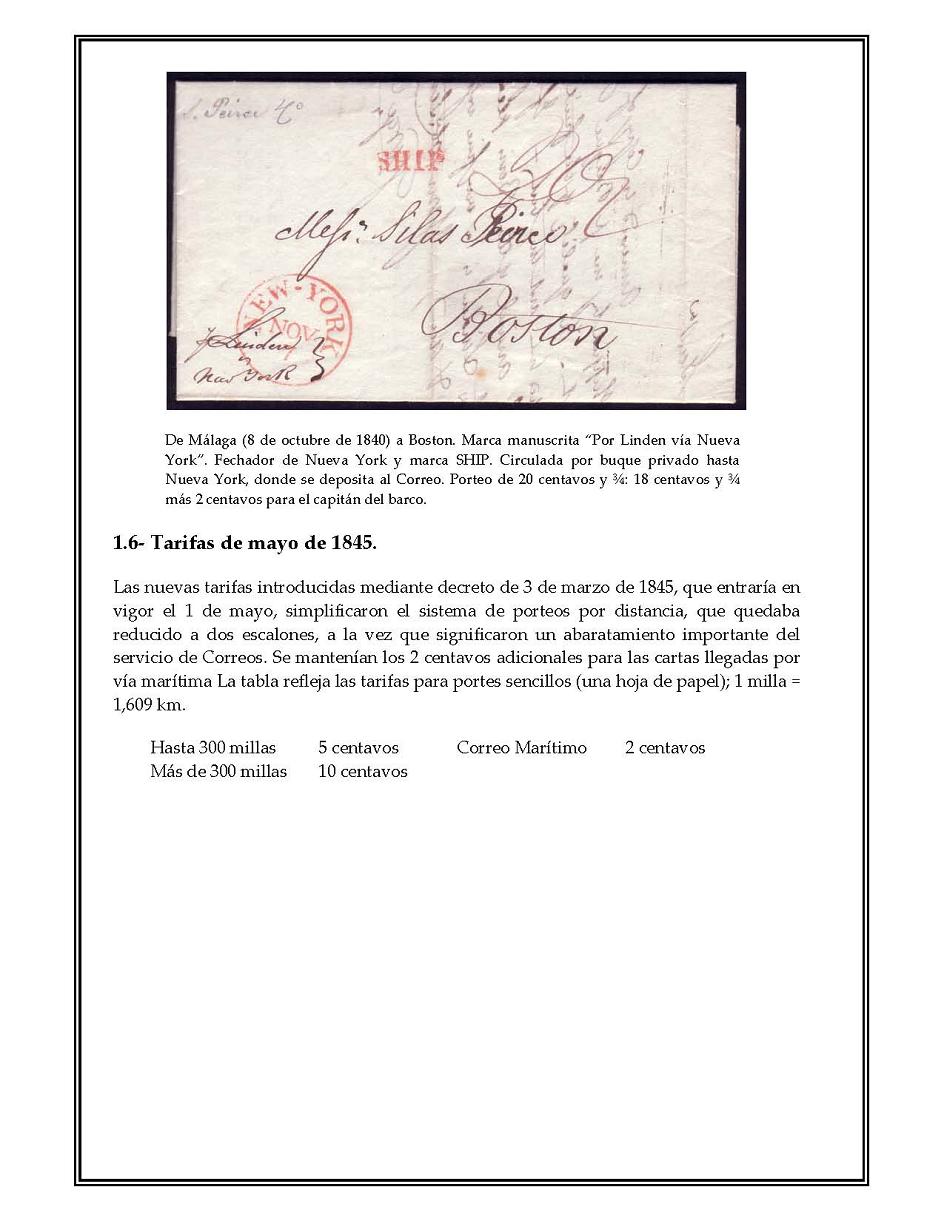 S. Peirce
SHIP
20¾
Messrs. Silas Peirce
Boston
NEW-YORK
NOV
7
p Linden
New York
De Málaga (8 de octubre de 1840) a Boston. Marca manuscrita “Por Linden vía Nueva
York”. Fechador de Nueva York y marca SHIP. Circulada por buque privado hasta
Nueva York, donde se deposita al Correo. Porteo de 20 centavos y ¾: 18 centavos y ¾
más 2 centavos para el capitán del barco.
1.6- Tarifas de mayo de 1845.
Las nuevas tarifas introducidas mediante decreto de 3 de marzo de 1845, que entraría en
vigor el 1 de mayo, simplificaron el sistema de porteos por distancia, que quedaba
reducido a dos escalones, a la vez que significaron un abaratamiento importante del
servicio de Correos. Se mantenían los 2 centavos adicionales para las cartas llegadas por
vía marítima La tabla refleja las tarifas para portes sencillos (una hoja de papel); 1 milla =
1,609 km.
Hasta 300 millas 5 centavos Correo Marítimo 2 centavos
Más de 300 millas 10 centavos